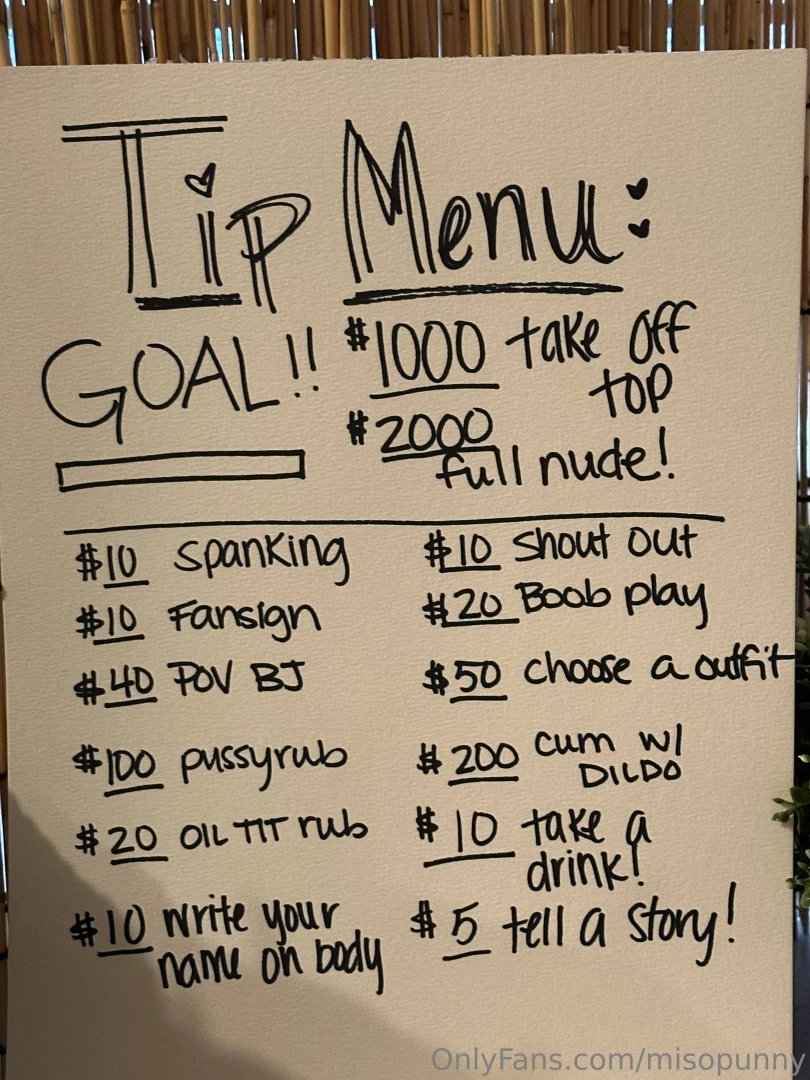 Tip Menu:
GOAL!! $1000 take off
top
$2000
full nude!
$10 spanking
$10 shout out
$10 Fansign
$20 Boob play
$40 POV BJ
$50 choose a outfit
$100 pussyrub
$200 cum w/
DILDO
$20 OIL TIT rub
$10 take a
drink!
$10 write your
name on body
$5 tell a story!
OnlyFans.com/misopunny